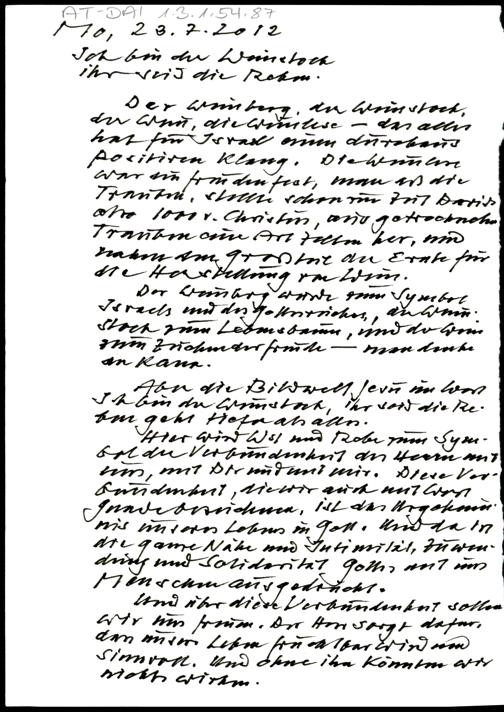 AT-DAI 1.3.1.54.87
Mo, 23.7.2012
Ich bin der Weinstock
ihr seid die Reben.
Der Weinberg, der Weinstock,
der Wein, die Weinlese – das alles
hat für Israel einen durchaus
positiven Klang. Die Weinlese
war ein Freudenfest, man aß die
Trauben, stellte schon zur Zeit Davids
also 1000 v. Christus, aus getrockneten
Trauben eine Art Fladen her, und
nahm den Großteil der Ernte für
die Herstellung von Wein.
Der Weinberg wurde zum Symbol
Israels und des Gottesreiches, der Wein-
stock zum Lebensbaum, und der Wein
zum Zeichen der Freude – man denke
an Kana.
Aber die Bildwelt Jesu im Wort
Ich bin der Weinstock, ihr seid die Re-
ben geht tiefer als alles.
Hier wird und Rebe zum Sym-
bol der Verbundenheit des Herrn mit
uns, mit Dir und mit mir. Diese Ver-
bundenheit, die wir auch mit Wort
Gnade bezeichnen, ist das Urgeheim-
nis unseres Lebens in Gott. Und da ist
die ganze Nähe und Intimität, Zuwen-
dung und Solidarität Gottes mit uns
Menschen ausgedrückt.
Und über diese Verbundenheit sollen
wir uns freuen. Der Herr sorgt dafür,
dass unser Leben fruchtbar wird und
sinnvoll. Und ohne ihn könnten wir
nichts wirken.